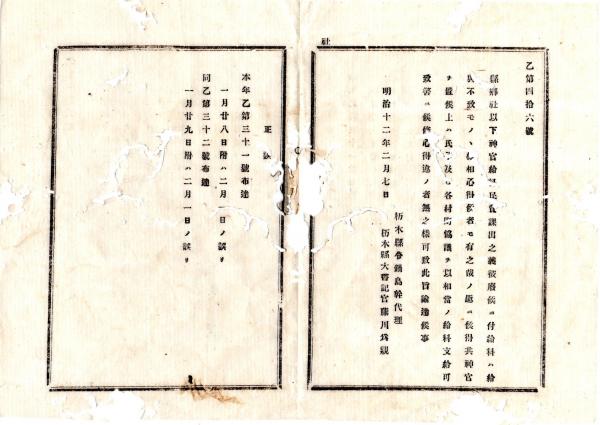 社
乙第四拾六號
縣鄕社以下神官給料民費課出之義被廢候ニ付給料ハ給
與不致モノヽ相心得候者モ有之哉ノ趣ニ候得共神官
ヲ置候上ハ氏子及各村町協議ヲ以相當ノ給料支給可
致筈ニ候條心得違ノ者無之樣可致此旨諭達候事
明治十二年二月七日
栃木縣令鍋島幹代理
栃木縣大書記官藤川爲親
正誤
本年乙第三十一號布達
一月廿八日附ハ二月一日ノ誤リ
同乙第三十二號布達
一月廿九日附ハ二月一日ノ誤リ